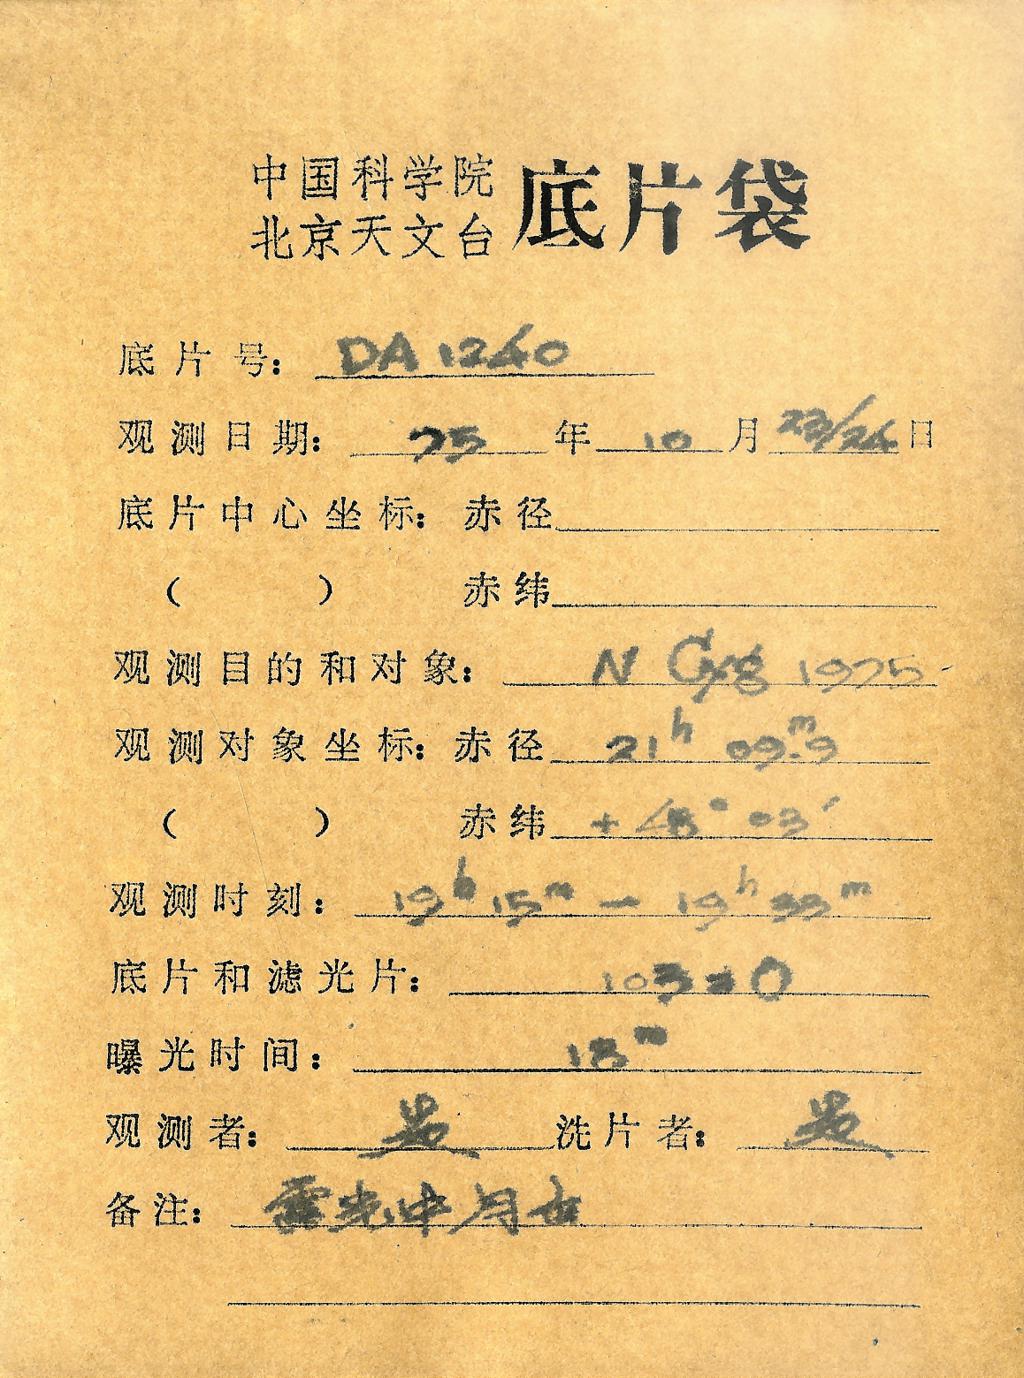 中国科学院
北京天文台 底片袋
底片号： DA 1240
观测日期： 75 年 10 月 23/24 日
底片中心坐标： 赤径
（ ） 赤纬
观测目的和对象： N Cyg 1975
观测对象坐标： 赤径 21h 09m.9
（ ） 赤纬 + 48° 03′
观测时刻： 19h 15m — 19h 33m
底片和滤光片： 103a O
曝光时间： 18m
观测者： 洗片者：
备注： 露光中月出